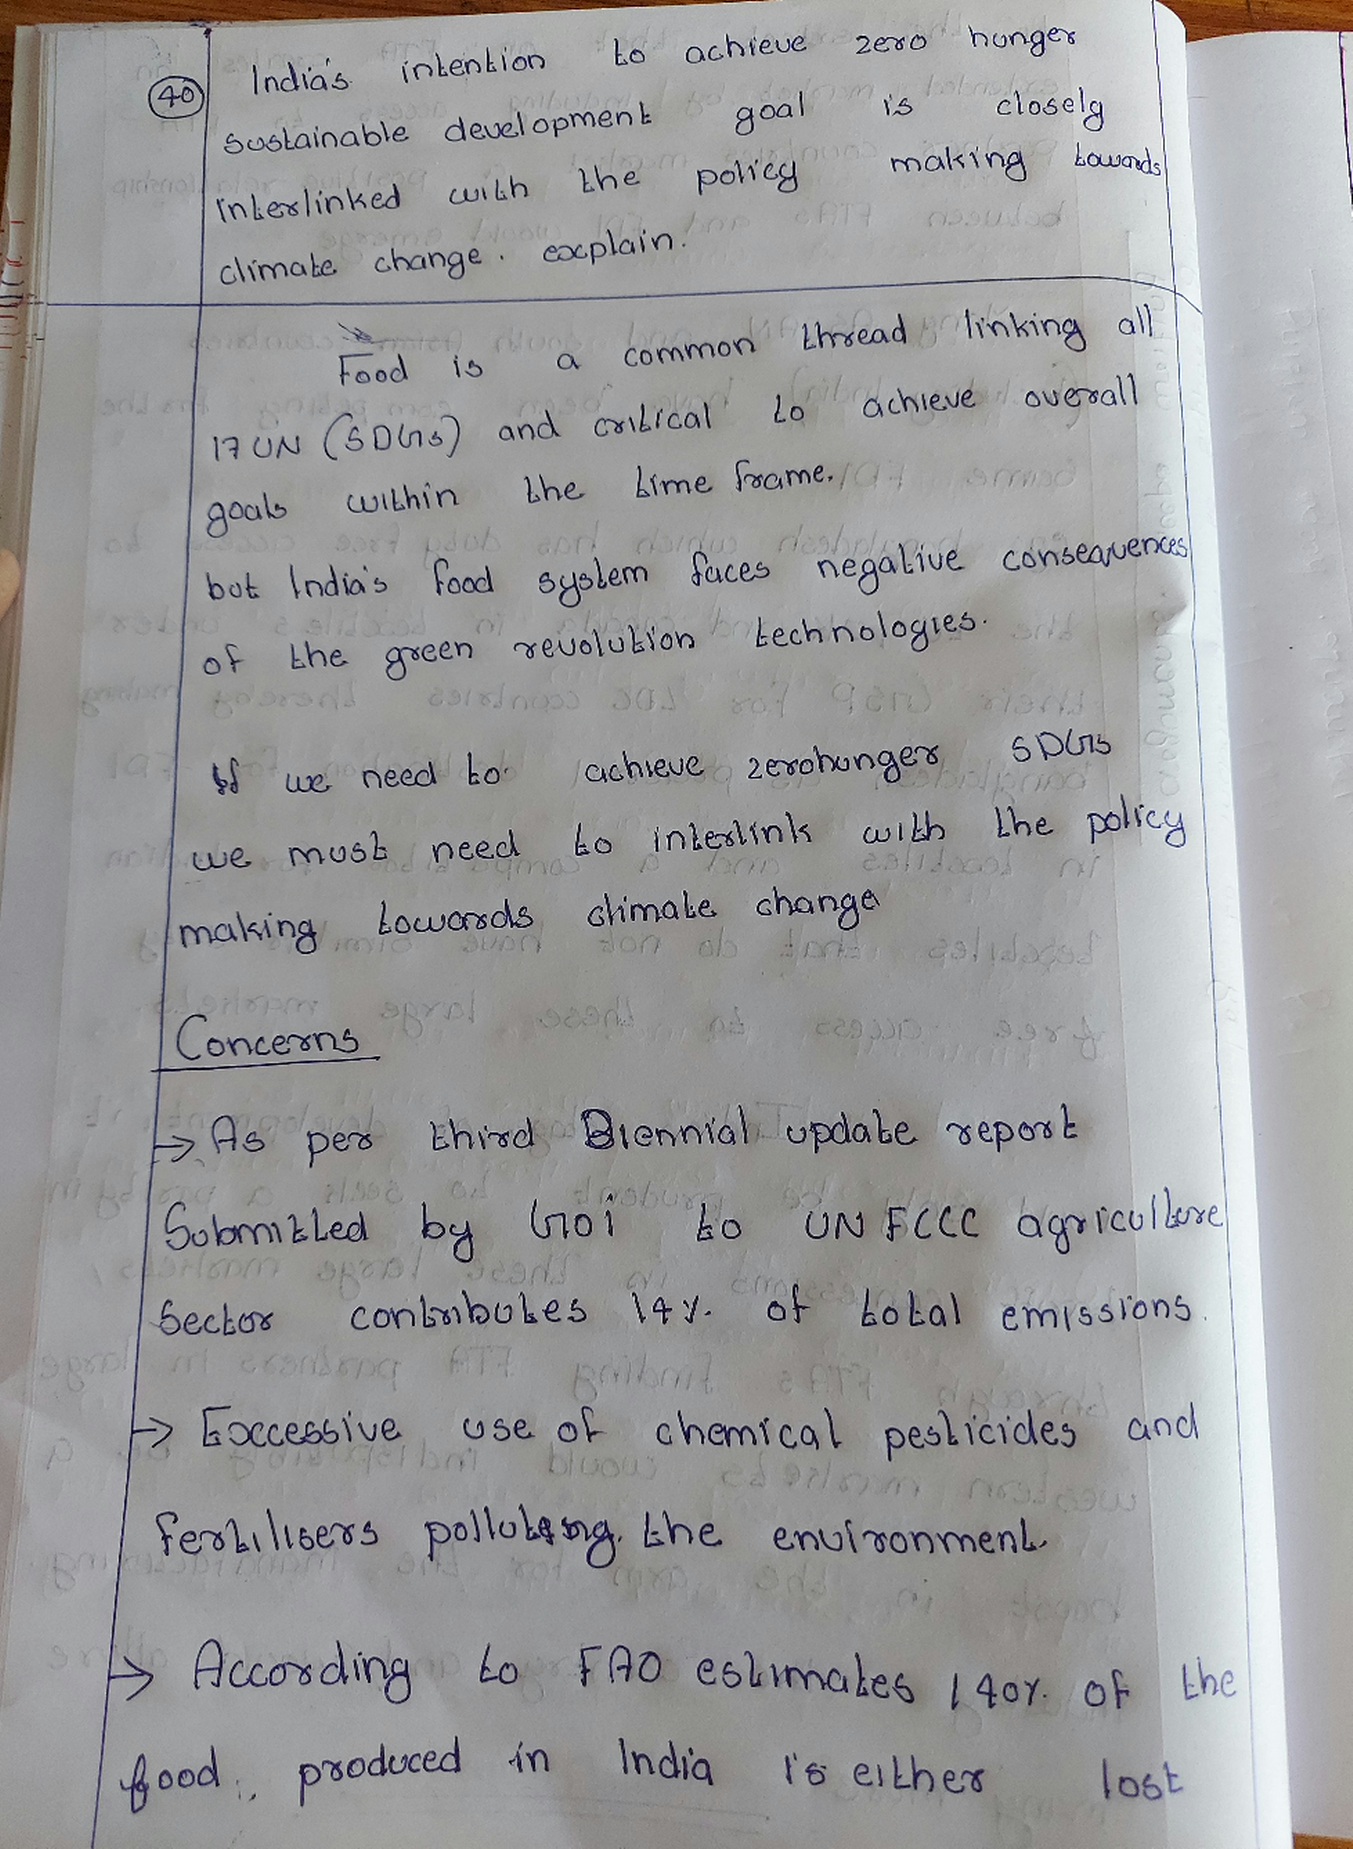 40 India's intention to achieve zero hunger
sustainable development goal is closely
interlinked with the policy making towards
climate change. explain.
Food is a common thread linking all
17 UN (SDGs) and critical to achieve overall
goals within the time frame.
but India's food system faces negative consequences
of the green revolution technologies.
If we need to achieve zerohunger SDGs
we must need to interlink with the policy
making towards climate change
Concerns
→ As per third Biennial update report
Submitted by GOi to UNFCCC agriculture
Sector contributes 14%. of total emissions.
→ Excessive use of chemical pesticides and
fertilisers polluting. the environment.
→ According to FAO estimates, 40%. of the
food, produced in India is either lost